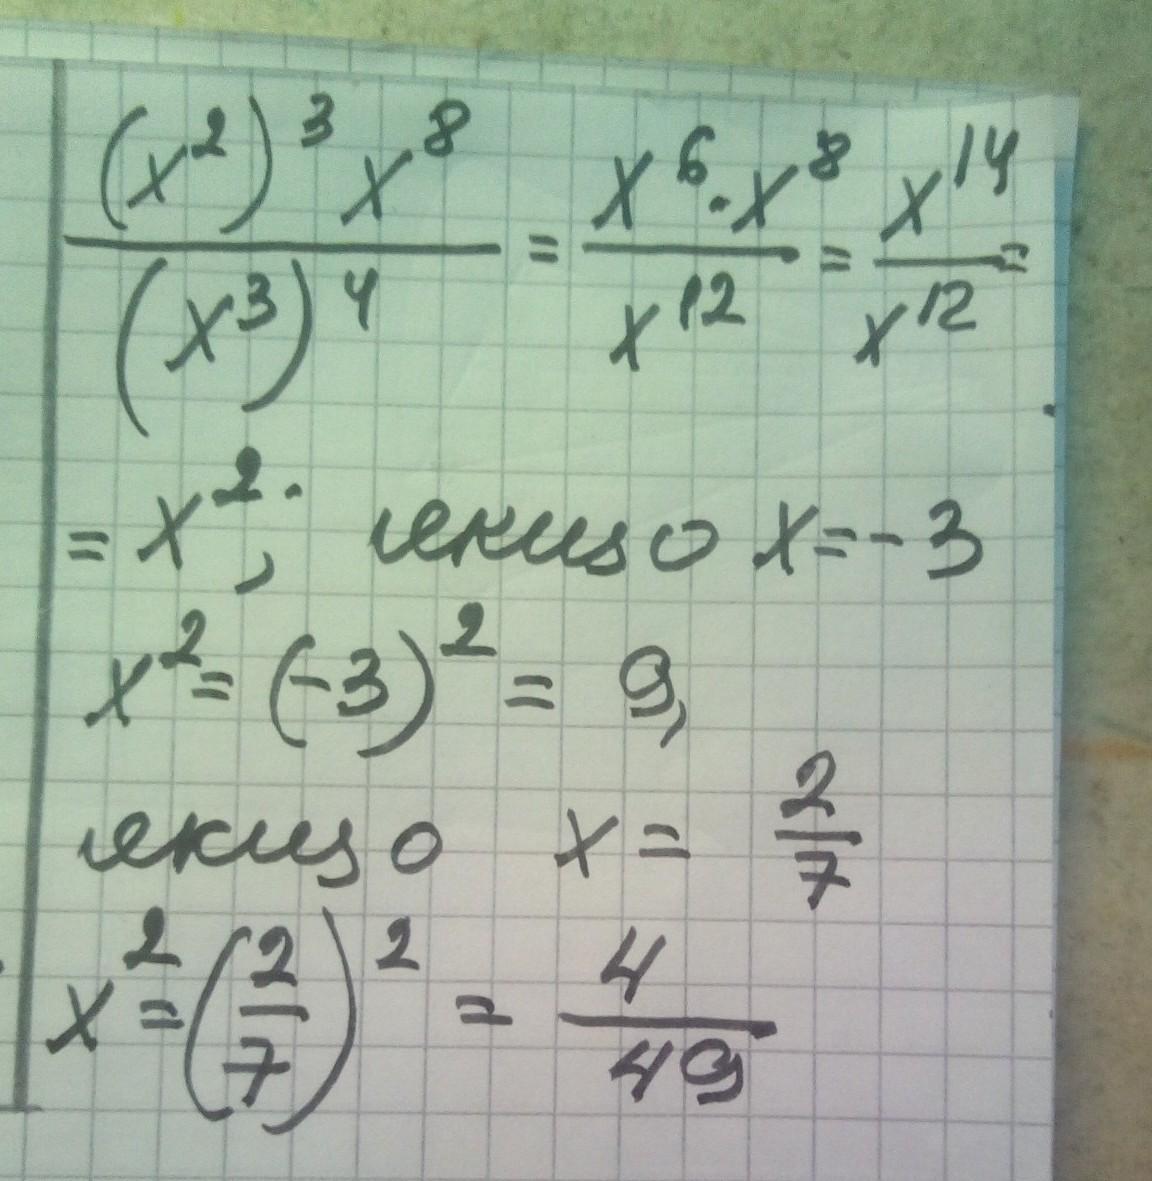 (x²)³ x⁸ / (x³)⁴ = x⁶ · x⁸ / x¹² = x¹⁴ / x¹² =
= x²; якщо x = -3
x² = (-3)² = 9,
якщо x = 2/7
x² = (2/7)² = 4/49